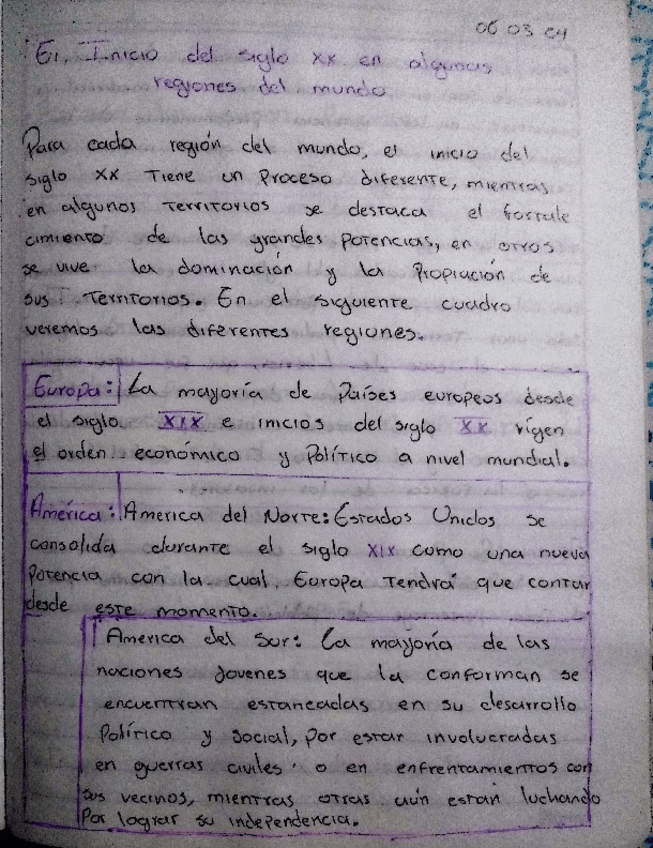 06 03 04
El Inicio del siglo xx en algunas
regiones del mundo
Para cada región del mundo, el inicio del
siglo XX Tiene un Proceso diferente, mientras
en algunos Territorios se destaca el fortale
cimiento de las grandes Potencias, en otros
se vive la dominación y la Propiación de
sus Territorios. En el siguiente cuadro
veremos las diferentes regiones.
Europa: La mayoría de Países europeos desde
el siglo XIX e inicios del siglo XX rigen
el orden económico y Político a nivel mundial.
América: America del Norte: Estados Unidos se
consolida durante el siglo XIX como una nueva
Potencia con la cual Europa Tendrá que contar
desde este momento.
America del Sur: La mayoría de las
naciones Jovenes que la conforman se
encuentran estancadas en su desarrollo
Político y social, Por estar involucradas
en guerras civiles o en enfrentamientos con
sus vecinos, mientras otras aún están luchando
Por lograr su independencia.